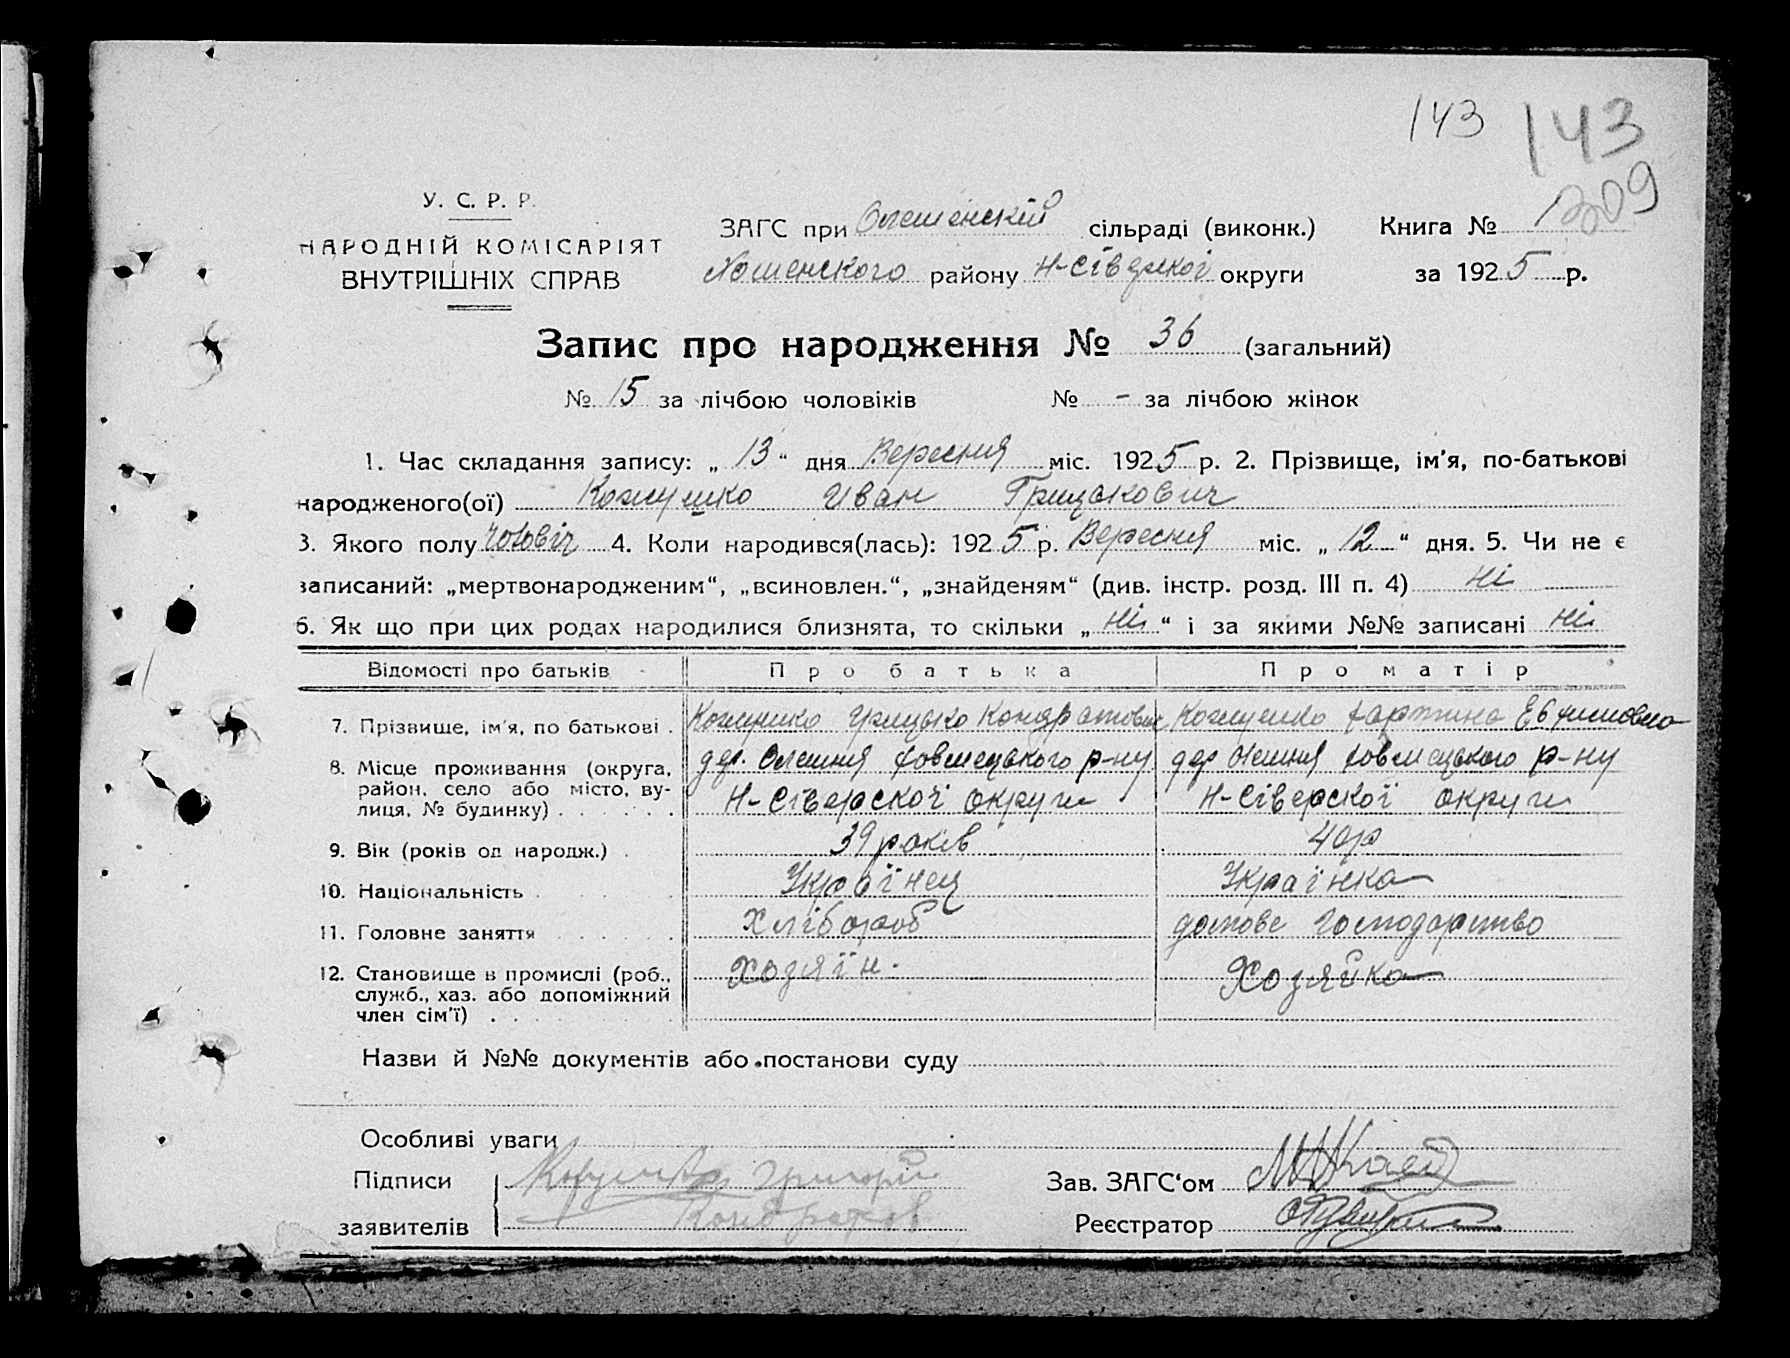 143 143
1309
У. С. Р. Р.
НАРОДНІЙ КОМІСАРІЯТ
ВНУТРІШНІХ СПРАВ
ЗАГС при Олешенскій сільраді (виконк.) Книга №
району Н-Сіверскої округи за 1925 р.
Запис про народження № 36 (загальний)
№ 15 за лічбою чоловіків № - за лічбою жінок
1. Час складання запису: „ 13 “ дня Вересня міс. 1925 р. 2. Прізвище, ім'я, по-батькові
народженого(ої) Кожушко Иван Грицькович
3. Якого полу чоловіч 4. Коли народився(лась): 1925 р. Вересня міс. „ 12 “ дня. 5. Чи не є
записаний: „мертвонародженим“, „всиновлен.“, „знайденям“ (див. інстр. розд. III п. 4) ні
6. Як що при цих родах народилися близнята, то скільки „ ні “ і за якими №№ записані ні
Відомості про батьків Про батька Про матір
7. Прізвище, ім'я, по батькові . Кожушко Грицько Кондратович Кожушко Евфимовна
8. Місце проживання (округа, дер. Олешня р-ну дер Олешня р-ну
район, село або місто, ву-
лиця, № будинку) . . . . . . Н-Сіверскої округи Н-Сіверскої округи
9. Вік (років од народж.) . 39 років 40 р
10. Національність Українец Українка
11. Головне заняття Хлібороб домове господарство
12. Становище в промислі (роб., Хозяїн. Хозяйка
служб., хаз. або допоміжний
член сім'ї) . .
Назви й №№ документів або постанови суду
Особливі уваги
Підписи Григорій Зав. ЗАГС'ом
заявителів Реєстратор